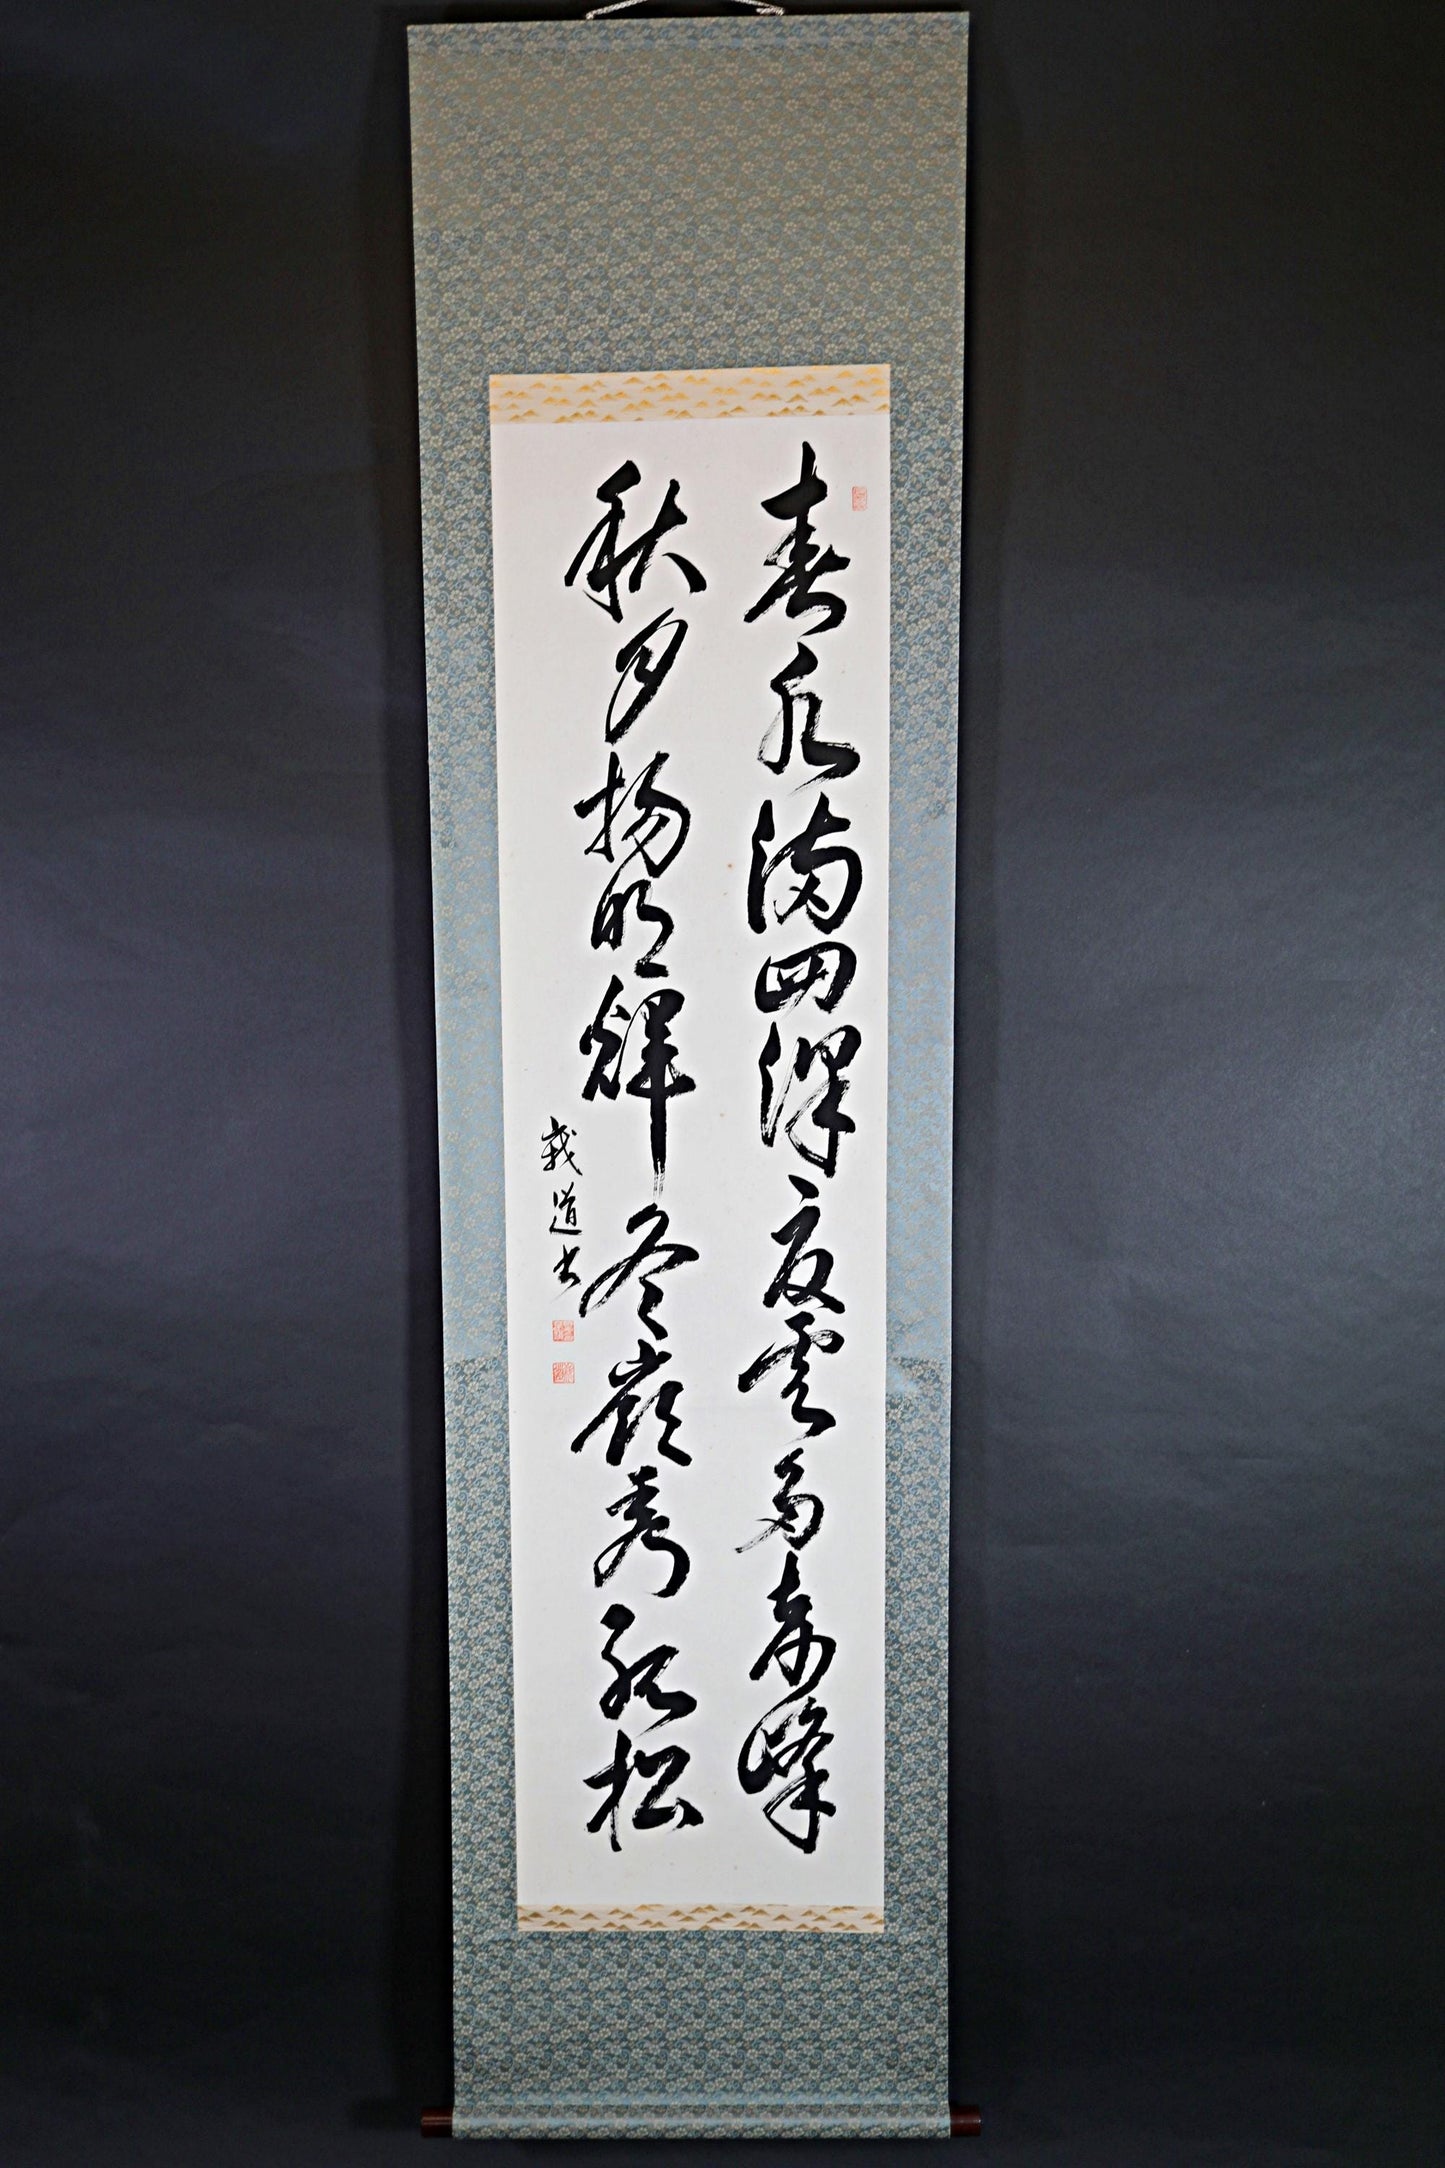 春水満四澤夏雲多奇峰
秋月揚明輝冬嶺秀孤松
道書